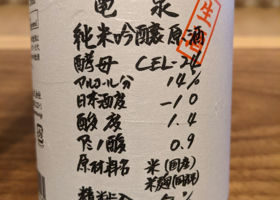 亀泉
生酒
純米吟醸原酒
酵母 CEL-24
アルコール分 14%
日本酒度 -10
酸度 1.4
アミノ酸 0.9
原材料名 米(国産)
米麹(国産米)
精米